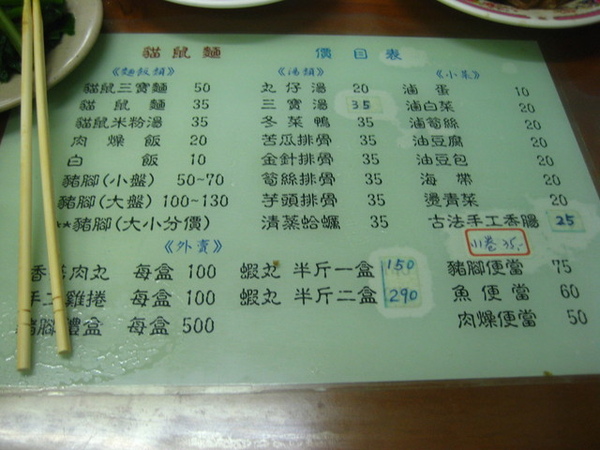 貓鼠麵 價目表
《麵飯類》 《湯類》 《小菜》
貓鼠三寶麵 50 丸仔湯 20 滷蛋 10
貓鼠麵 35 三寶湯 35 滷白菜 20
貓鼠米粉湯 35 冬菜鴨 35 滷筍絲 20
肉燥飯 20 苦瓜排骨 35 油豆腐 20
白飯 10 金針排骨 35 油豆包 20
豬腳(小盤) 50~70 筍絲排骨 35 海帶 20
豬腳(大盤) 100~130 芋頭排骨 35 燙青菜 20
豬腳(大小分價) 清蒸蛤蠣 35 古法手工香腸 25
《外賣》 小卷 35.
香菇肉丸 每盒 100 蝦丸 半斤一盒 150 豬腳便當 75
手工雞捲 每盒 100 蝦丸 半斤二盒 290 魚便當 60
豬腳禮盒 每盒 500 肉燥便當 50